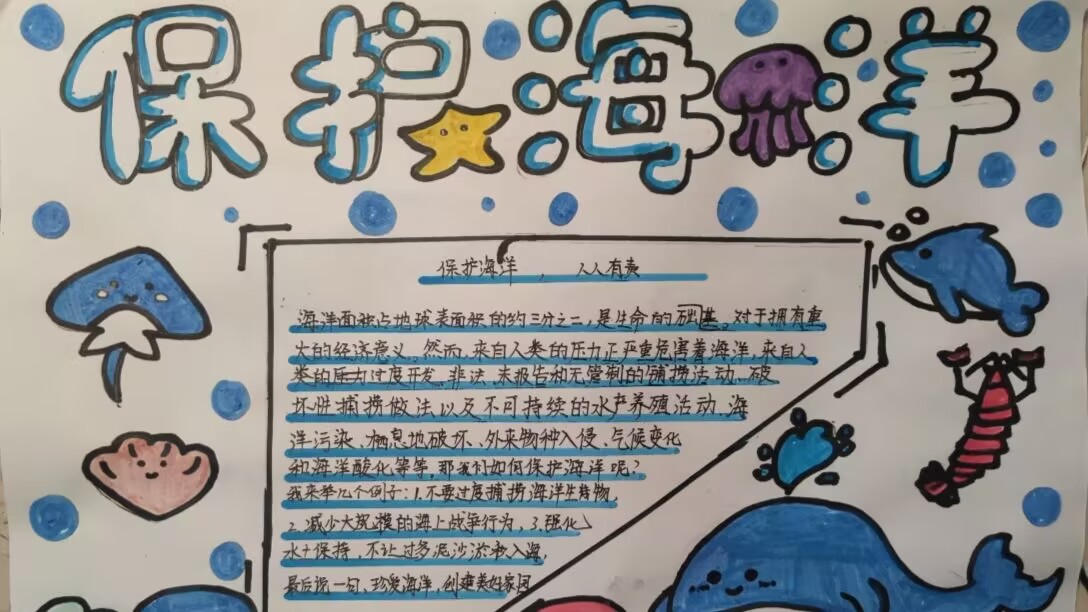 保护海洋
保护海洋，人人有责
海洋面积占地球表面积的约三分之二，是生命的础基。对于拥有重
大的经济意义。然而，来自人类的压力正严重危害着海洋，来自人
类的压力过度开发、非法、未报告和无管制的捕捞活动、破
坏性捕捞做法以及不可持续的水产养殖活动、海
洋污染、栖息地破坏、外来物种入侵、气候变化
和海洋酸化等等，那我们如何保护海洋呢？
我来举几个例子：1.不要过度捕捞海洋生物，
2.减少大规模的海上战争行为，3.强化
水土保持，不让过多泥沙淤积入海，
最后说一句，珍爱海洋，创建美好家园